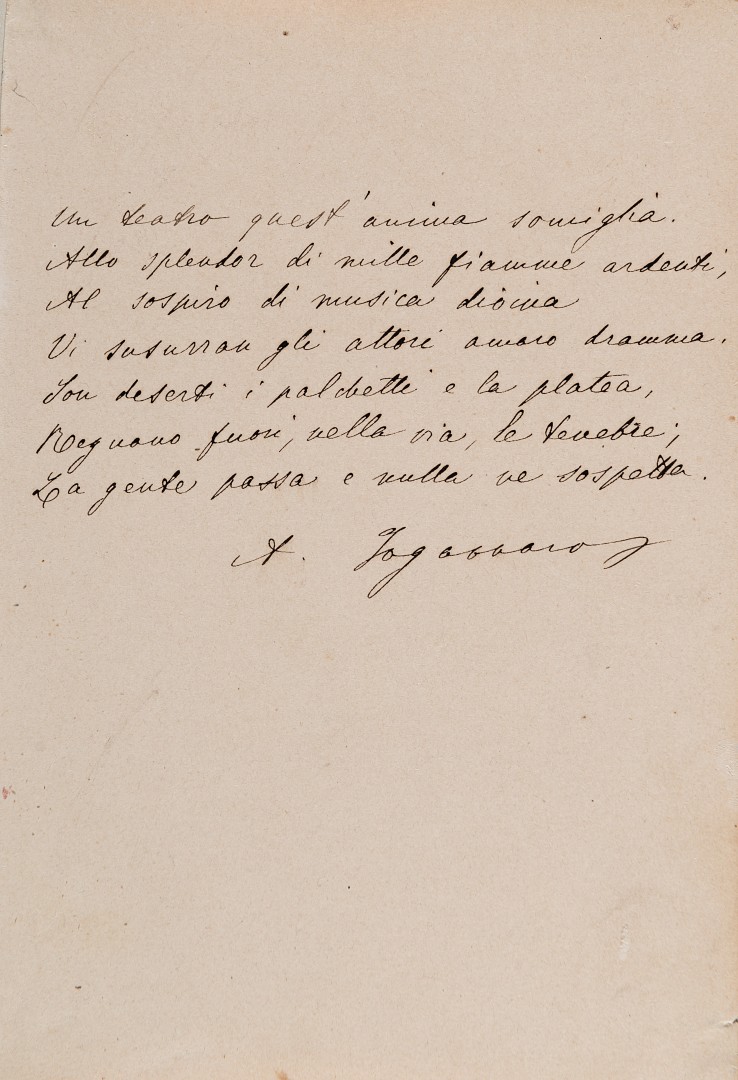 Un teatro quest'anima somiglia.
Allo splendor di mille fiamme ardenti,
Al sospiro di musica divina
Vi susurran gli attori amaro dramma.
Son deserti i palchetti e la platea,
Regnano fuori, nella via, le tenebre;
La gente passa e nulla ne sospetta.
A. Fogazzaro